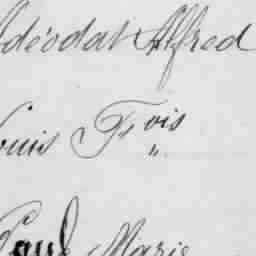 Adéodat Alfred
Louis Frs ois
"
Paul Marie